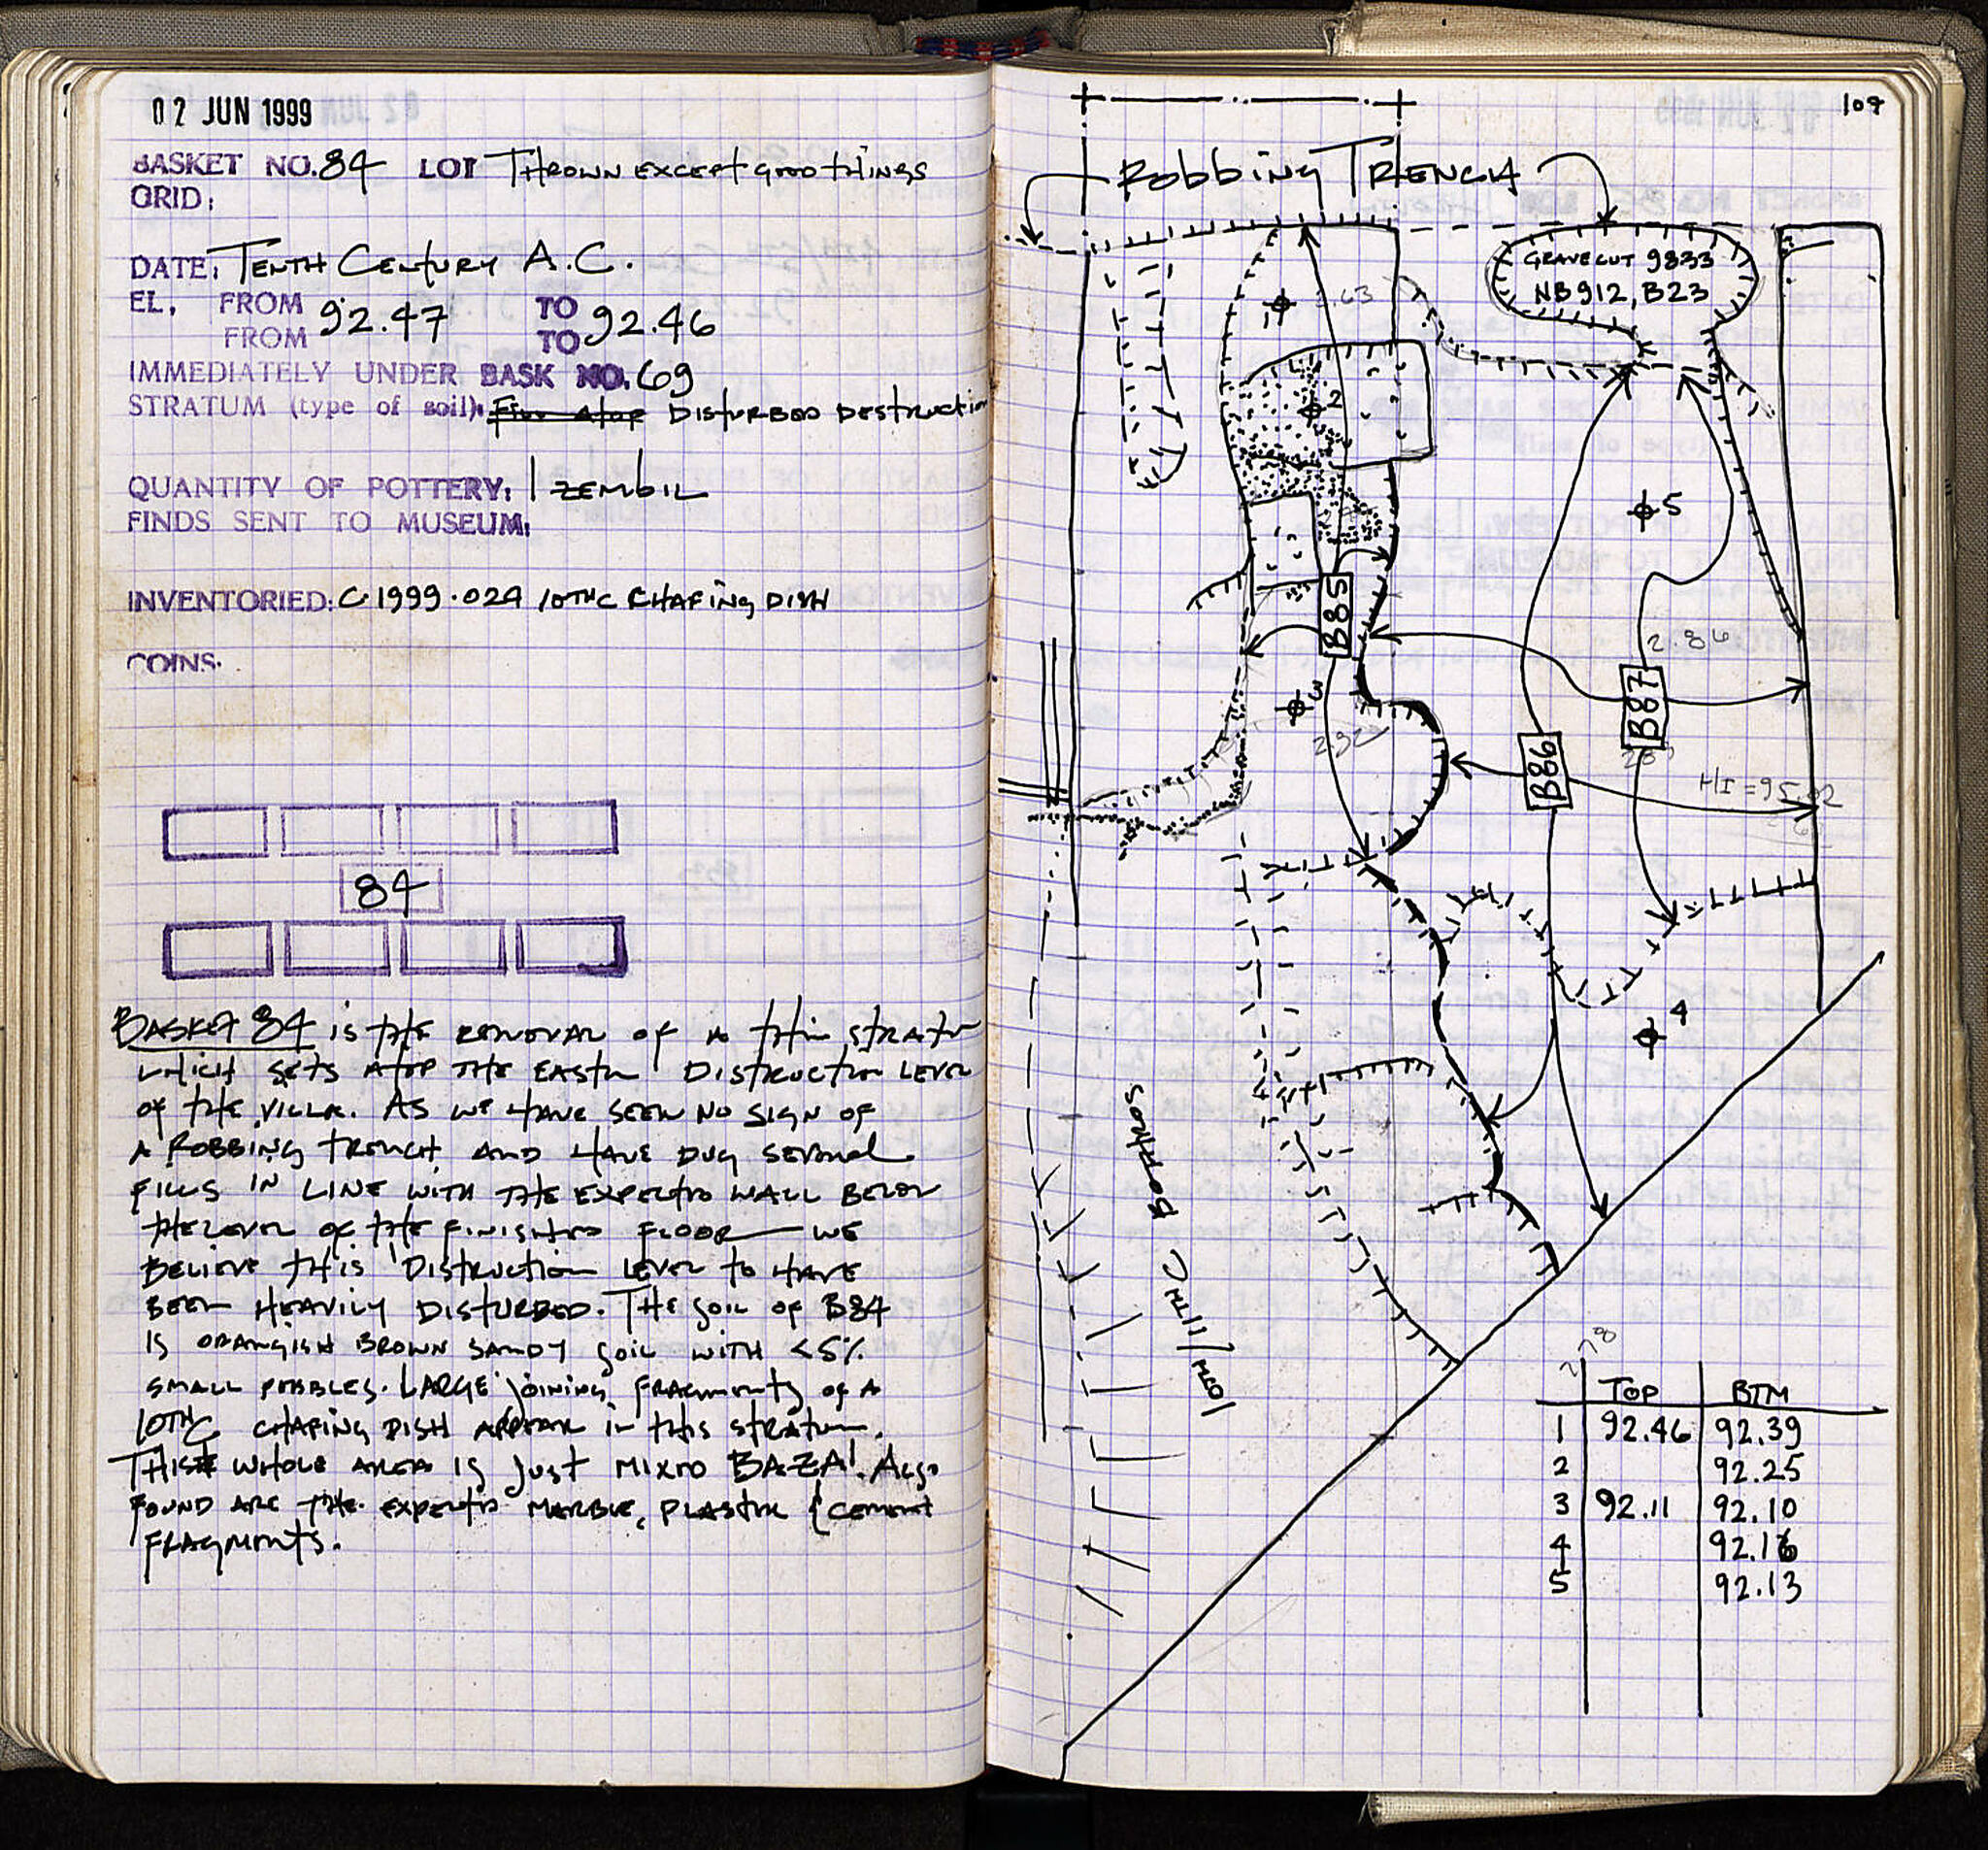 02 JUN 1999
BASKET NO. 84 LOT THROWN EXCEPT GOOD THINGS
GRID:
DATE: TENTH CENTURY A.C.
EL. FROM 92.47 TO 92.46
FROM TO
IMMEDIATELY UNDER BASK NO. 69
STRATUM (type of soil): DISTURBED DESTRUCTION
QUANTITY OF POTTERY: 1 ZEMBIL
FINDS SENT TO MUSEUM:
INVENTORIED: C.1999.024 10TH C CHAFING DISH
COINS.
84
BASKET 84 IS THE REMOVAL OF A THIN STRATUM
WHICH SETS ATOP THE EASTERN DISTRUCTION LEVEL
OF THE VILLA. AS WE HAVE SEEN NO SIGN OF
A ROBBING TRENCH AND HAVE DUG SEVERAL
FILLS IN LINE WITH THE EXPECTED WALL BELOW
THE LEVEL OF THE FINISHED FLOOR — WE
BELIEVE THIS DISTRUCTION LEVEL TO HAVE
BEEN HEAVILY DISTURBED. THE SOIL OF B84
IS ORANGISH BROWN SANDY SOIL WITH <5%
SMALL PEBBLES. LARGE JOINING FRAGMENTS OF A
10TH C CHAFING DISH APPEAR IN THIS STRATUM.
THIS WHOLE AREA IS JUST MIXED BAZA! ALSO
FOUND ARE THE EXPECTED MARBLE, PLASTER & CEMENT
FRAGMENTS.
109
ROBBING TRENCH
GRAVECUT 9833
NB912, B23
1
2.63
2
5
B85
2.86
3
B87
2.92
B86
HI = 95.02
4
BOTHROS
10TH/11TH C
TOP BTM
1 92.46 92.39
2 92.25
3 92.11 92.10
4 92.16
5 92.13